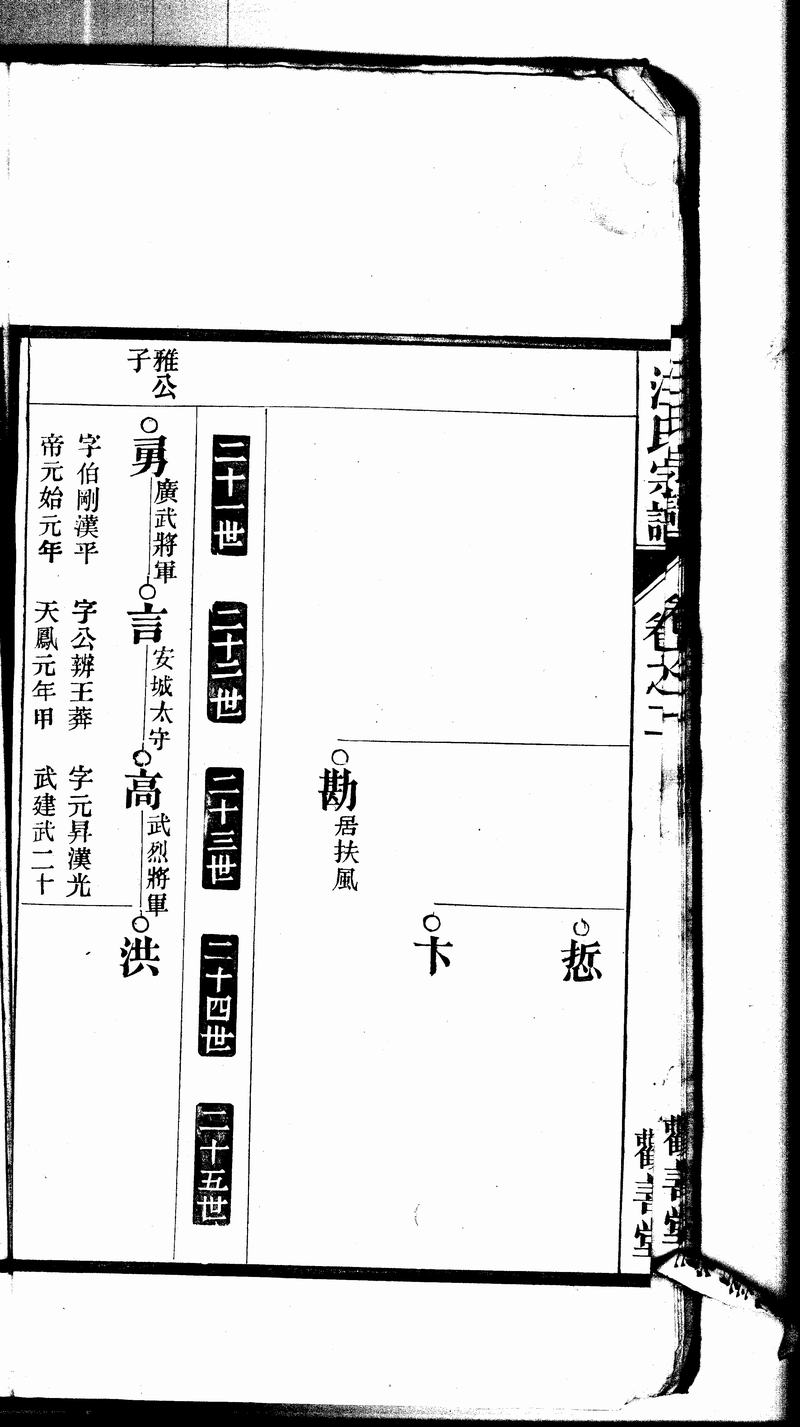 汪氏宗譜
卷之
勸善堂
勸善堂
悊
卞
勘
居扶風
二十一世
二十二世
二十三世
二十四世
二十五世
雅公
子
勇
廣武將軍
字伯剛漢平
帝元始元年
言
安城太守
字公辨王莽
天鳳元年甲
高
武烈將軍
字元昇漢光
武建武二十
洪